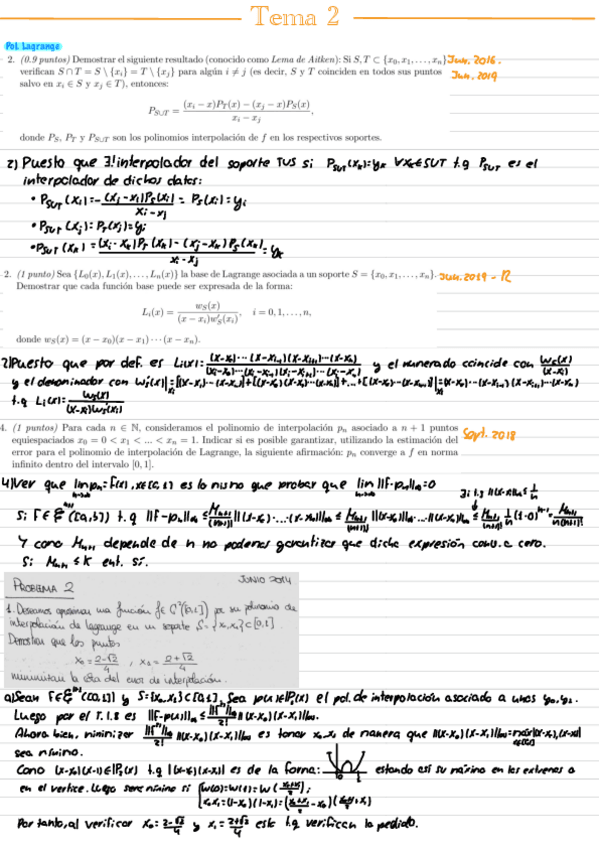 Tema 2
Pol. Lagrange
2. (0.9 puntos) Demostrar el siguiente resultado (conocido como Lema de Aitken): Si S, T ⊂ {x₀, x₁, . . . , xₙ} Jun. 2016.
verifican S ∩ T = S \ {xᵢ} = T \ {xⱼ} para algún i ≠ j (es decir, S y T coinciden en todos sus puntos Jun. 2019
salvo en xᵢ ∈ S y xⱼ ∈ T), entonces:
P_{S∪T} = ((xᵢ − x)P_T(x) − (xⱼ − x)P_S(x)) / (xᵢ − xⱼ),
donde P_S, P_T y P_{S∪T} son los polinomios interpolación de f en los respectivos soportes.
2) Puesto que ∃! interpolador del soporte TUS si P_{SUT}(xₖ)=yₖ ∀xₖ∈SUT t.q P_{SUT} es el
interpolador de dichos datos:
• P_{SUT}(xᵢ) = -(xⱼ-xᵢ)P_S(xᵢ) / (xᵢ-xⱼ) = P_S(xᵢ)=yᵢ
• P_{SUT}(xⱼ)=P_T(xⱼ)=yⱼ
• P_{SUT}(xₖ) = ((xᵢ-xₖ)P_T(xₖ)-(xⱼ-xₖ)P_S(xₖ)) / (xᵢ-xⱼ) = yₖ
2. (1 punto) Sea {L₀(x), L₁(x), . . . , Lₙ(x)} la base de Lagrange asociada a un soporte S = {x₀, x₁, . . . , xₙ}. Jun. 2019 - R
Demostrar que cada función base puede ser expresada de la forma:
Lᵢ(x) = w_S(x) / ((x − xᵢ)w'_S(xᵢ)), i = 0, 1, . . . , n,
donde w_S(x) = (x − x₀)(x − x₁) · · · (x − xₙ).
2) Puesto que por def. es Lᵢ(x)= (x-x₀)···(x-xᵢ₋₁)(x-xᵢ₊₁)···(x-xₙ) / (xᵢ-x₀)···(xᵢ-xᵢ₋₁)(xᵢ-xᵢ₊₁)···(xᵢ-xₙ) y el numerado coincide con w_S(x)/(x-xᵢ)
y el denominador con
t.q Lᵢ(x)= w_S(x) / (x-xᵢ)w'_S(xᵢ)
4. (1 puntos) Para cada n ∈ ℕ, consideramos el polinomio de interpolación pₙ asociado a n + 1 puntos
equiespaciados x₀ = 0 < x₁ < ... < xₙ = 1. Indicar si es posible garantizar, utilizando la estimación del Sept. 2018
error para el polinomio de interpolación de Lagrange, la siguiente afirmación: pₙ converge a f en norma
infinito dentro del intervalo [0, 1].
4) Ver que lim pₙ = f(x), x∈[0,1] es lo mismo que probar que lim ||f-pₙ||∞=0
Si f∈ ([a,b]) t.q ||f-pₙ||∞ ≤
Y como Mₙ₊₁ depende de n no podemos garantizar que dicha expresión conv. a cero.
Si Mₙ₊₁ ≤ K ent. sí.
PROBLEMA 2 JUNIO 2014
1. Deseamos aproximar una función f∈C²([0,1]) por su polinomio de
interpolación de Lagrange en un soporte S={x₀,x₁}⊂[0,1].
Demostrar que los puntos
x₀ = (2-√2)/4 , x₁ = (2+√2)/4
minimizan la cota del error de interpolación.
a) Sean f∈ ([0,1]) y S={x₀,x₁}⊂[0,1]. Sea p(x)∈P₁(x) el pol. de interpolación asociado a unos y₀,y₁.
Luego por el T.1.8 es ||f-p(x)||∞ ≤ ||f''||∞/2! ||(x-x₀)(x-x₁)||∞.
Ahora bien, minimizar ||f''||∞/2! ||(x-x₀)(x-x₁)||∞ es tomar x₀,x₁ de manera que
sea mínimo.
Como (x-x₀)(x-x₁)∈P₂(x) t.q |(x-x₀)(x-x₁)| es de la forma: estando así su máximo en los extremos o
en el vertice. Luego será mínimo si
Por tanto, al verificar x₀=(2-√2)/4 y x₁=(2+√2)/4 esto t.q verifican lo pedido.